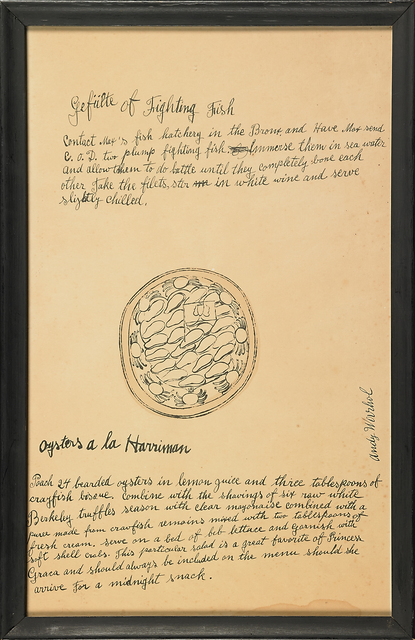 Gefülte of Fighting Fish
Contact Max's fish hatchery in the Bronx and Have Max send
C.O.D. two plump fighting fish. Immerse them in sea water
and allow them to do battle until they completely bone each
other Take the filets, stor in white wine and serve
slightly chilled.
oysters a la Harriman
Poach 24 bearded oysters in lemon juice and three tablespoons of
crayfish bisque. combine with the shavings of six raw white
Berkeley truffles season with clear mayonaise combined with a
puree made from crawfish remains mixed with two tablespoons of
fresh cream. serve on a bed of beb lettuce and garnish with
soft shell crabs. This particular salad is a great favorite of Princess
Graca and should always be included on the menu should she
arrive For a midnight snack.
Andy Warhol